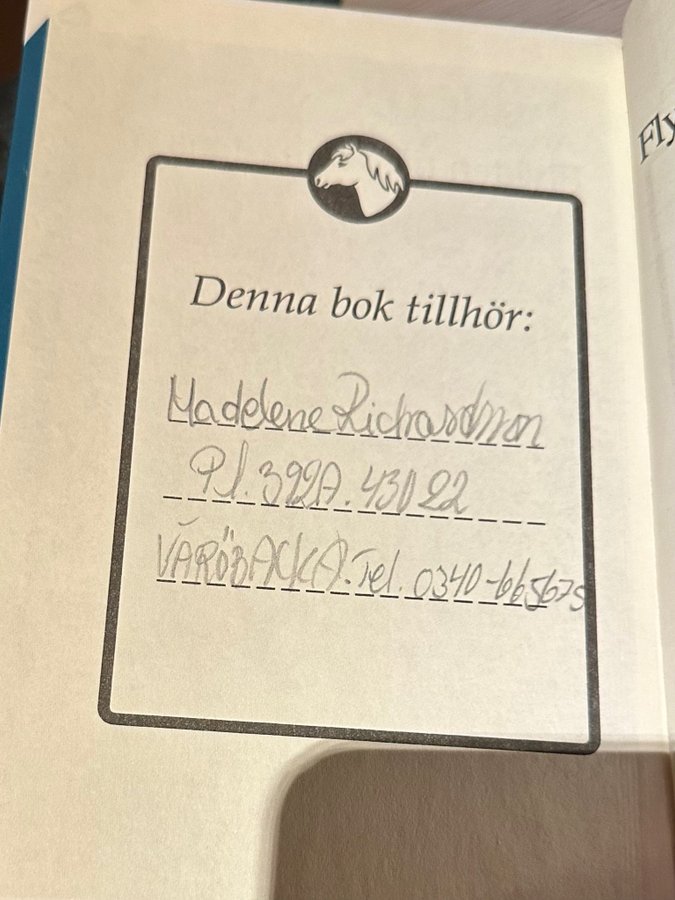 Denna bok tillhör:
Madelene Richardsson
Pl. 392A. 430 22
VÄRÖBACKA. Tel. 0340-665675
Fly